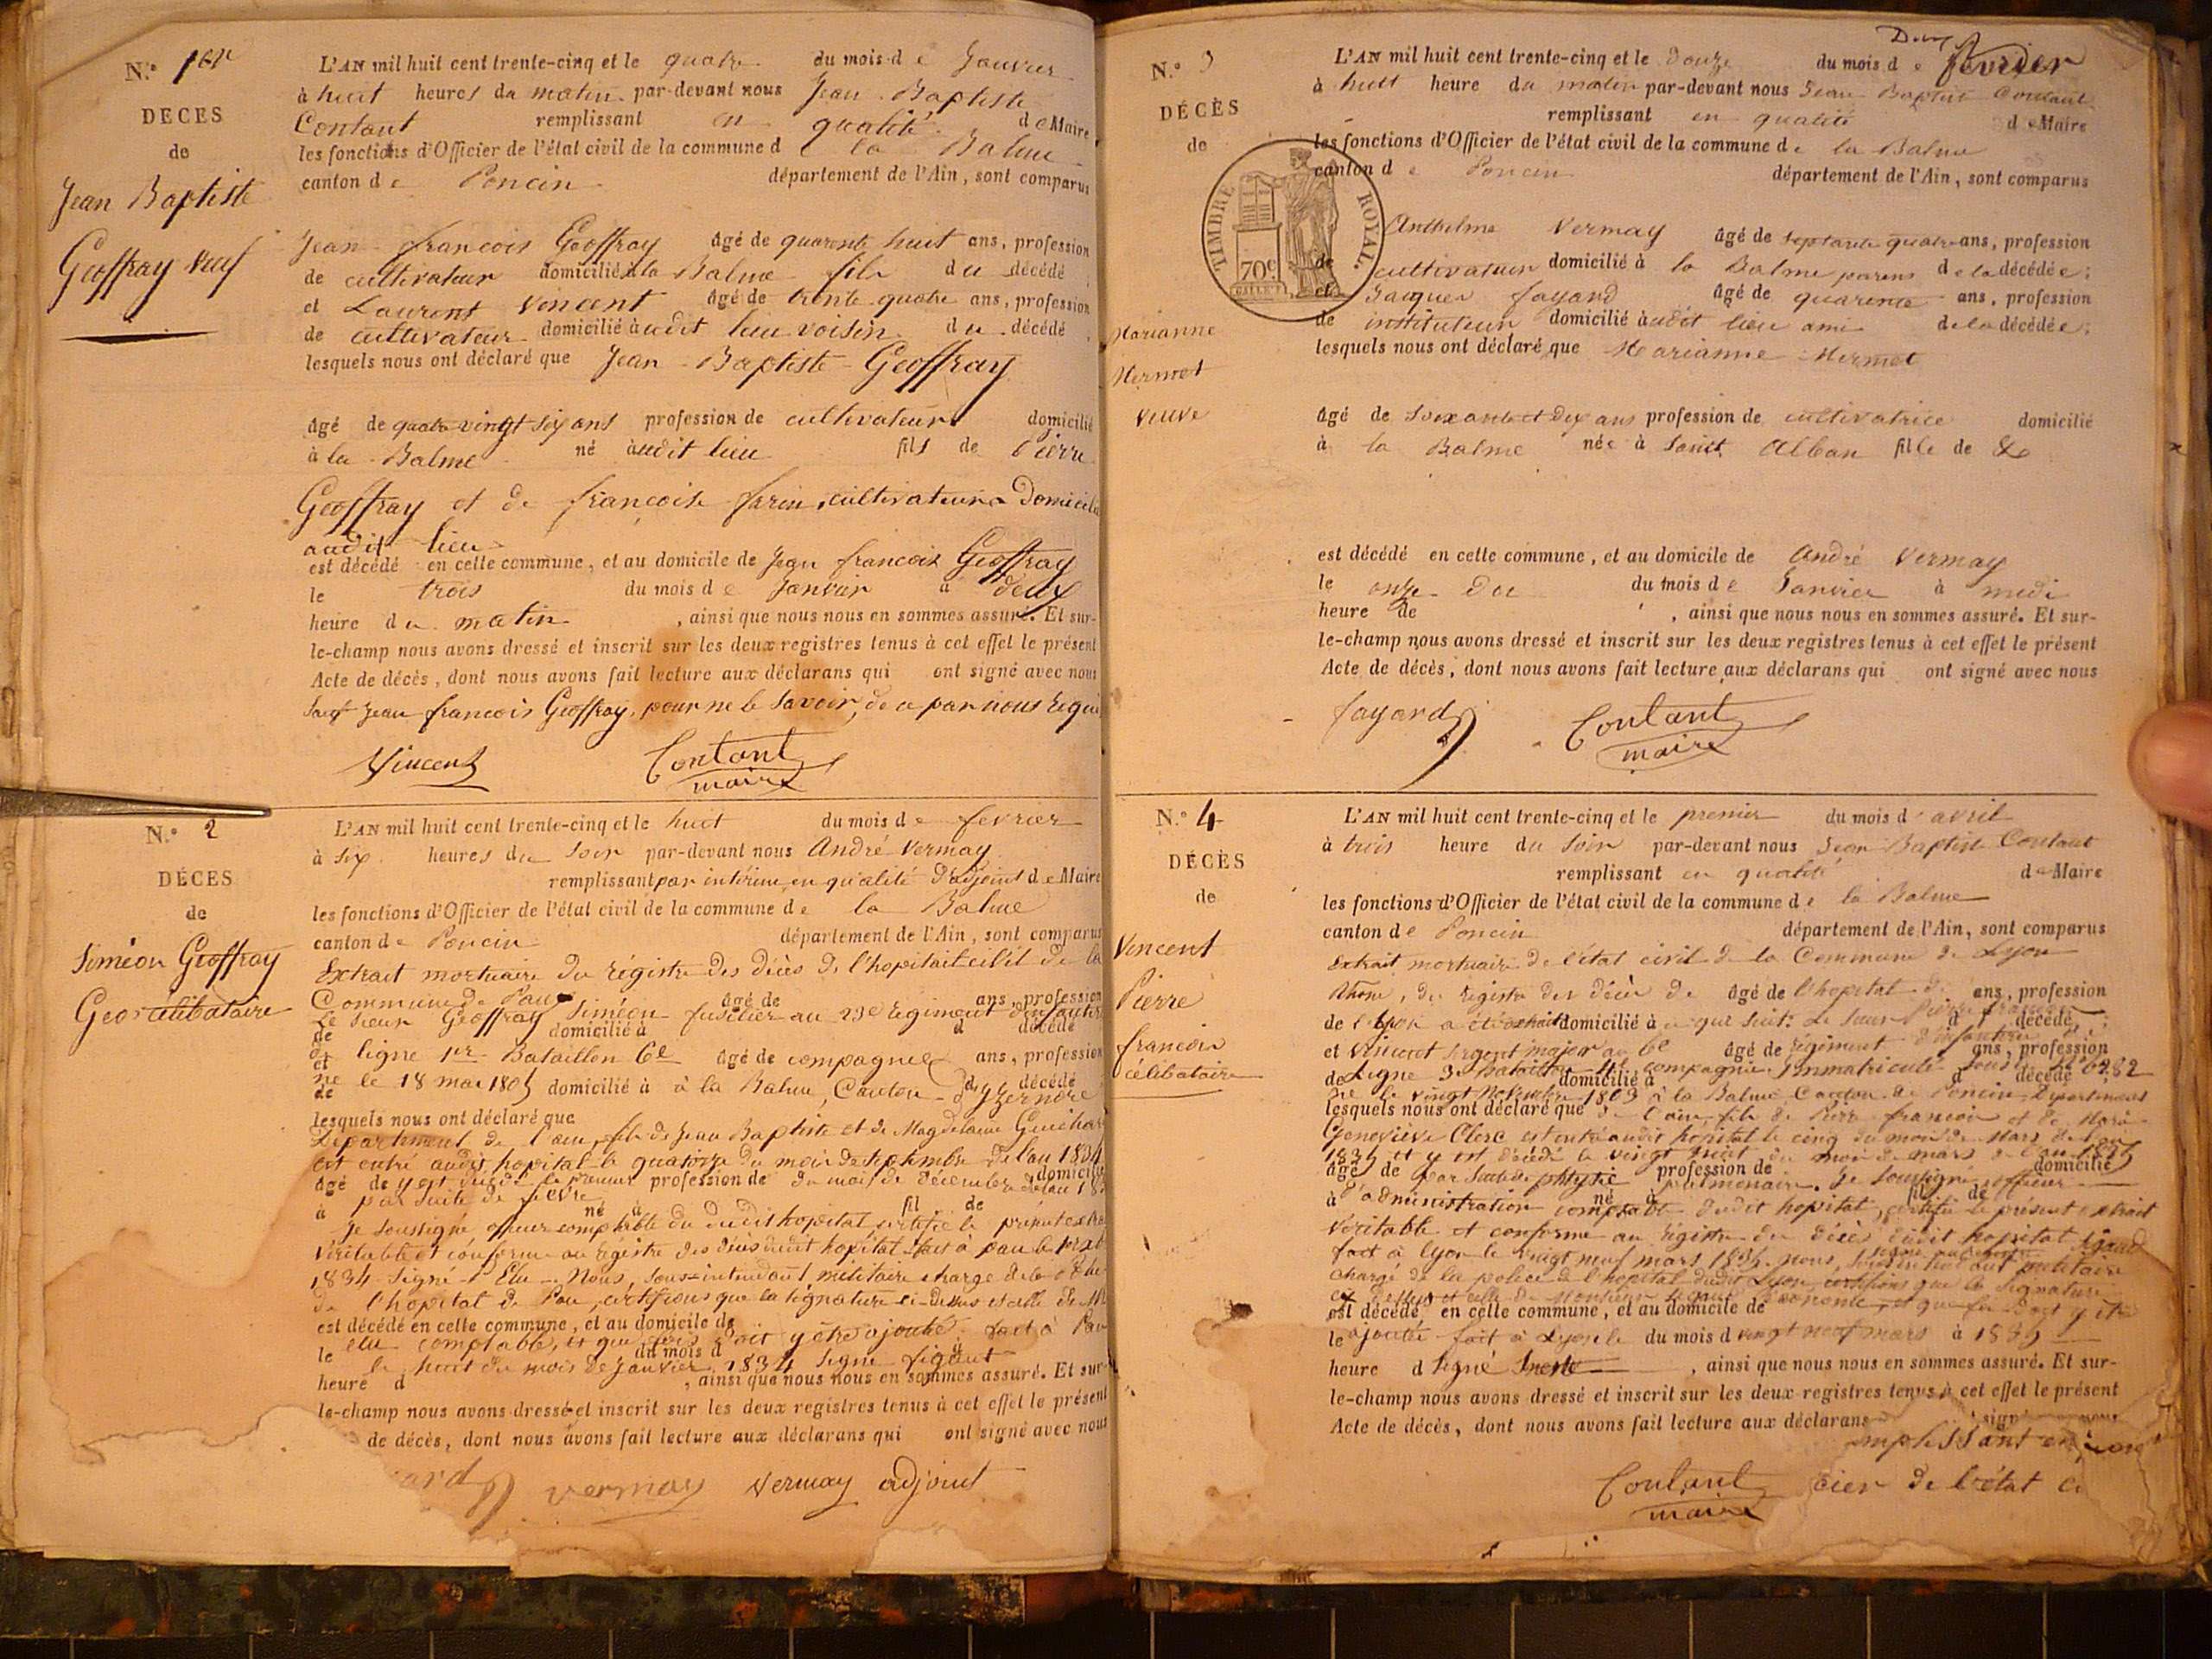 N.º 1er
DECES
de
Jean Baptiste
Geoffray veuf
L'AN mil huit cent trente-cinq et le quatre du mois de Janvier
à huit heures du matin par-devant nous Jean Baptiste
Contant remplissant en qualité de Maire
les fonctions d'Officier de l'état civil de la commune de la Balme
canton de Poncin département de l'Ain, sont comparus
Jean francois Geoffray âgé de quarente huit ans, profession
de cultivateur domicilié à la Balme fils du décédé
et Laurent Vincent âgé de trente quatre ans, profession
de cultivateur domicilié à audit lieu voisin du décédé
lesquels nous ont déclaré que Jean Baptiste Geoffray
âgé de quatre vingt six ans profession de cultivateur domicilié
à la Balme né audit lieu fils de Pierre
Geoffray et de francoise cultivateurs
audit lieu
est décédé en cette commune, et au domicile de Jean francois Geoffray
le trois du mois de Janvier à deux
heure du matin, ainsi que nous nous en sommes assuré. Et sur-
le-champ nous avons dressé et inscrit sur les deux registres tenus à cet effet le présent
Acte de décès, dont nous avons fait lecture aux déclarans qui ont signé avec nous
sauf Jean francois Geoffray, pour ne le savoir, de ce par nous requi
Vincent Contant
maire
N.º 2
DÉCES
de
Siméon Geoffray
Geo célibataire
L'AN mil huit cent trente-cinq et le huit du mois de fevrier
à six heures du soir par-devant nous André Vermay
remplissant par intérim en qualité d'adjoint de Maire
les fonctions d'Officier de l'état civil de la commune de la Balme
canton de Poncin département de l'Ain, sont comparus
Extrait mortuaire du régistre des décès de l'hopital civil de la
Commune de Pau âgé de ans, profession
Le sieur Geoffray Siméon fusilier au 23e régiment
de domicilié à d décédé
ligne 1er Bataillon 6e âgé de compagnie ans, profession
né le 18 mai domicilié à à la Balme, Canton d'Yzernore décédé
lesquels nous ont déclaré que
Département de l'ain, fils de Jean Baptiste et de Magdelaine
est entré audit hopital le quatorze du mois de septembre de l'an 1834
âgé de y est décédé le premier profession de du mois de décembre domicilié
à par suite de fievre né à fil de
Je soussigné officier comptable du dudit hopital certifie le présent
véritable et conforme au régistre des décès dudit hopital fait à pau le
1834 Signé Elu Nous, sous-intendant militaire chargé de la
de l'hopital de Pau, certifions que la signature ci-dessus est celle de
est décédé en cette commune, et au domicile de
le comptable, et que foi doit y être ajouté fait à Pau
le huit du mois de janvier 1834 signé
heure d, ainsi que nous nous en sommes assuré. Et sur
le-champ nous avons dressé et inscrit sur les deux registres tenus à cet effet le présent
de décès, dont nous avons fait lecture aux déclarans qui ont signé avec nous
vermay Vermay adjoint
N.º 3
DÉCÈS
de
Marianne
Mermet
veuve
TIMBRE ROYAL.
70c
L'AN mil huit cent trente-cinq et le Douze du mois de février
à huit heure du matin par-devant nous Jean Baptiste Contant
remplissant en qualité de Maire
les fonctions d'Officier de l'état civil de la commune de la Balme
canton de Poncin département de l'Ain, sont comparus
Anthelme Vermay âgé de septante quatre ans, profession
de cultivateur domicilié à la Balme parens de la décédée;
et Jacques fayard âgé de quarente ans, profession
de instituteur domicilié à audit lieu ami de la décédée;
lesquels nous ont déclaré que Marianne Mermet
âgé de soixante et dix ans profession de cultivatrice domicilié
à la Balme née à Saint Alban fille de
est décédé en cette commune, et au domicile de André Vermay
le onze du du mois de Janvier à midi
heure de, ainsi que nous nous en sommes assuré. Et sur-
le-champ nous avons dressé et inscrit sur les deux registres tenus à cet effet le présent
Acte de décès, dont nous avons fait lecture aux déclarans qui ont signé avec nous
fayard Contant
maire
N.º 4
DÉCÈS
de
Vincent
Pierre
francois
célibataire
L'AN mil huit cent trente-cinq et le premier du mois d'avril
à trois heure du soir par-devant nous Jean Baptiste Contant
remplissant en qualité de Maire
les fonctions d'Officier de l'état civil de la commune de la Balme
canton de Poncin département de l'Ain, sont comparus
Extrait mortuaire de l'état civil de la Commune de Lyon
Rhône, du registre des décès de âgé de l'hopital de ans, profession
de Lyon a été extrait domicilié à ce qui suit: Le sieur Pierre francois décédé
et Vincent sergent major au 6e âgé de régiment d'infanterie ans, profession
de Ligne 3e Bataillon 4e domicilié à compagnie immatriculé sous le décédé 6282
né le vingt Novembre 1803 à la Balme, Canton de Poncin, Département
lesquels nous ont déclaré que de l'ain, fils de Pierre francois et de Marie
Geneviève Clerc est entré audit hopital le cinq du mois de Mars de l'an
1835 et y est décédé le vingt huit du mois de mars de l'an 1835
âgé de par suite de phtysie profession de pulmonaire. Je soussigné officier domicilié
à d'administration comptable né à dudit hopital, certifie fil de le présent extrait
véritable et conforme au régistre des décès dudit hopital
fait à lyon le vingt neuf mars nous, militaire
chargé de la police de l'hopital dudit Lyon, certifions que la signature
ci dessus est celle de Monsieur économe, et que foi doit y être
est décédé en cette commune, et au domicile de
le ajoutée fait à Lyon le du mois d vingt neuf mars à
heure d signé, ainsi que nous nous en sommes assuré. Et sur-
le-champ nous avons dressé et inscrit sur les deux registres tenus à cet effet le présent
Acte de décès, dont nous avons fait lecture aux déclarans
Contant cier de l'état
maire